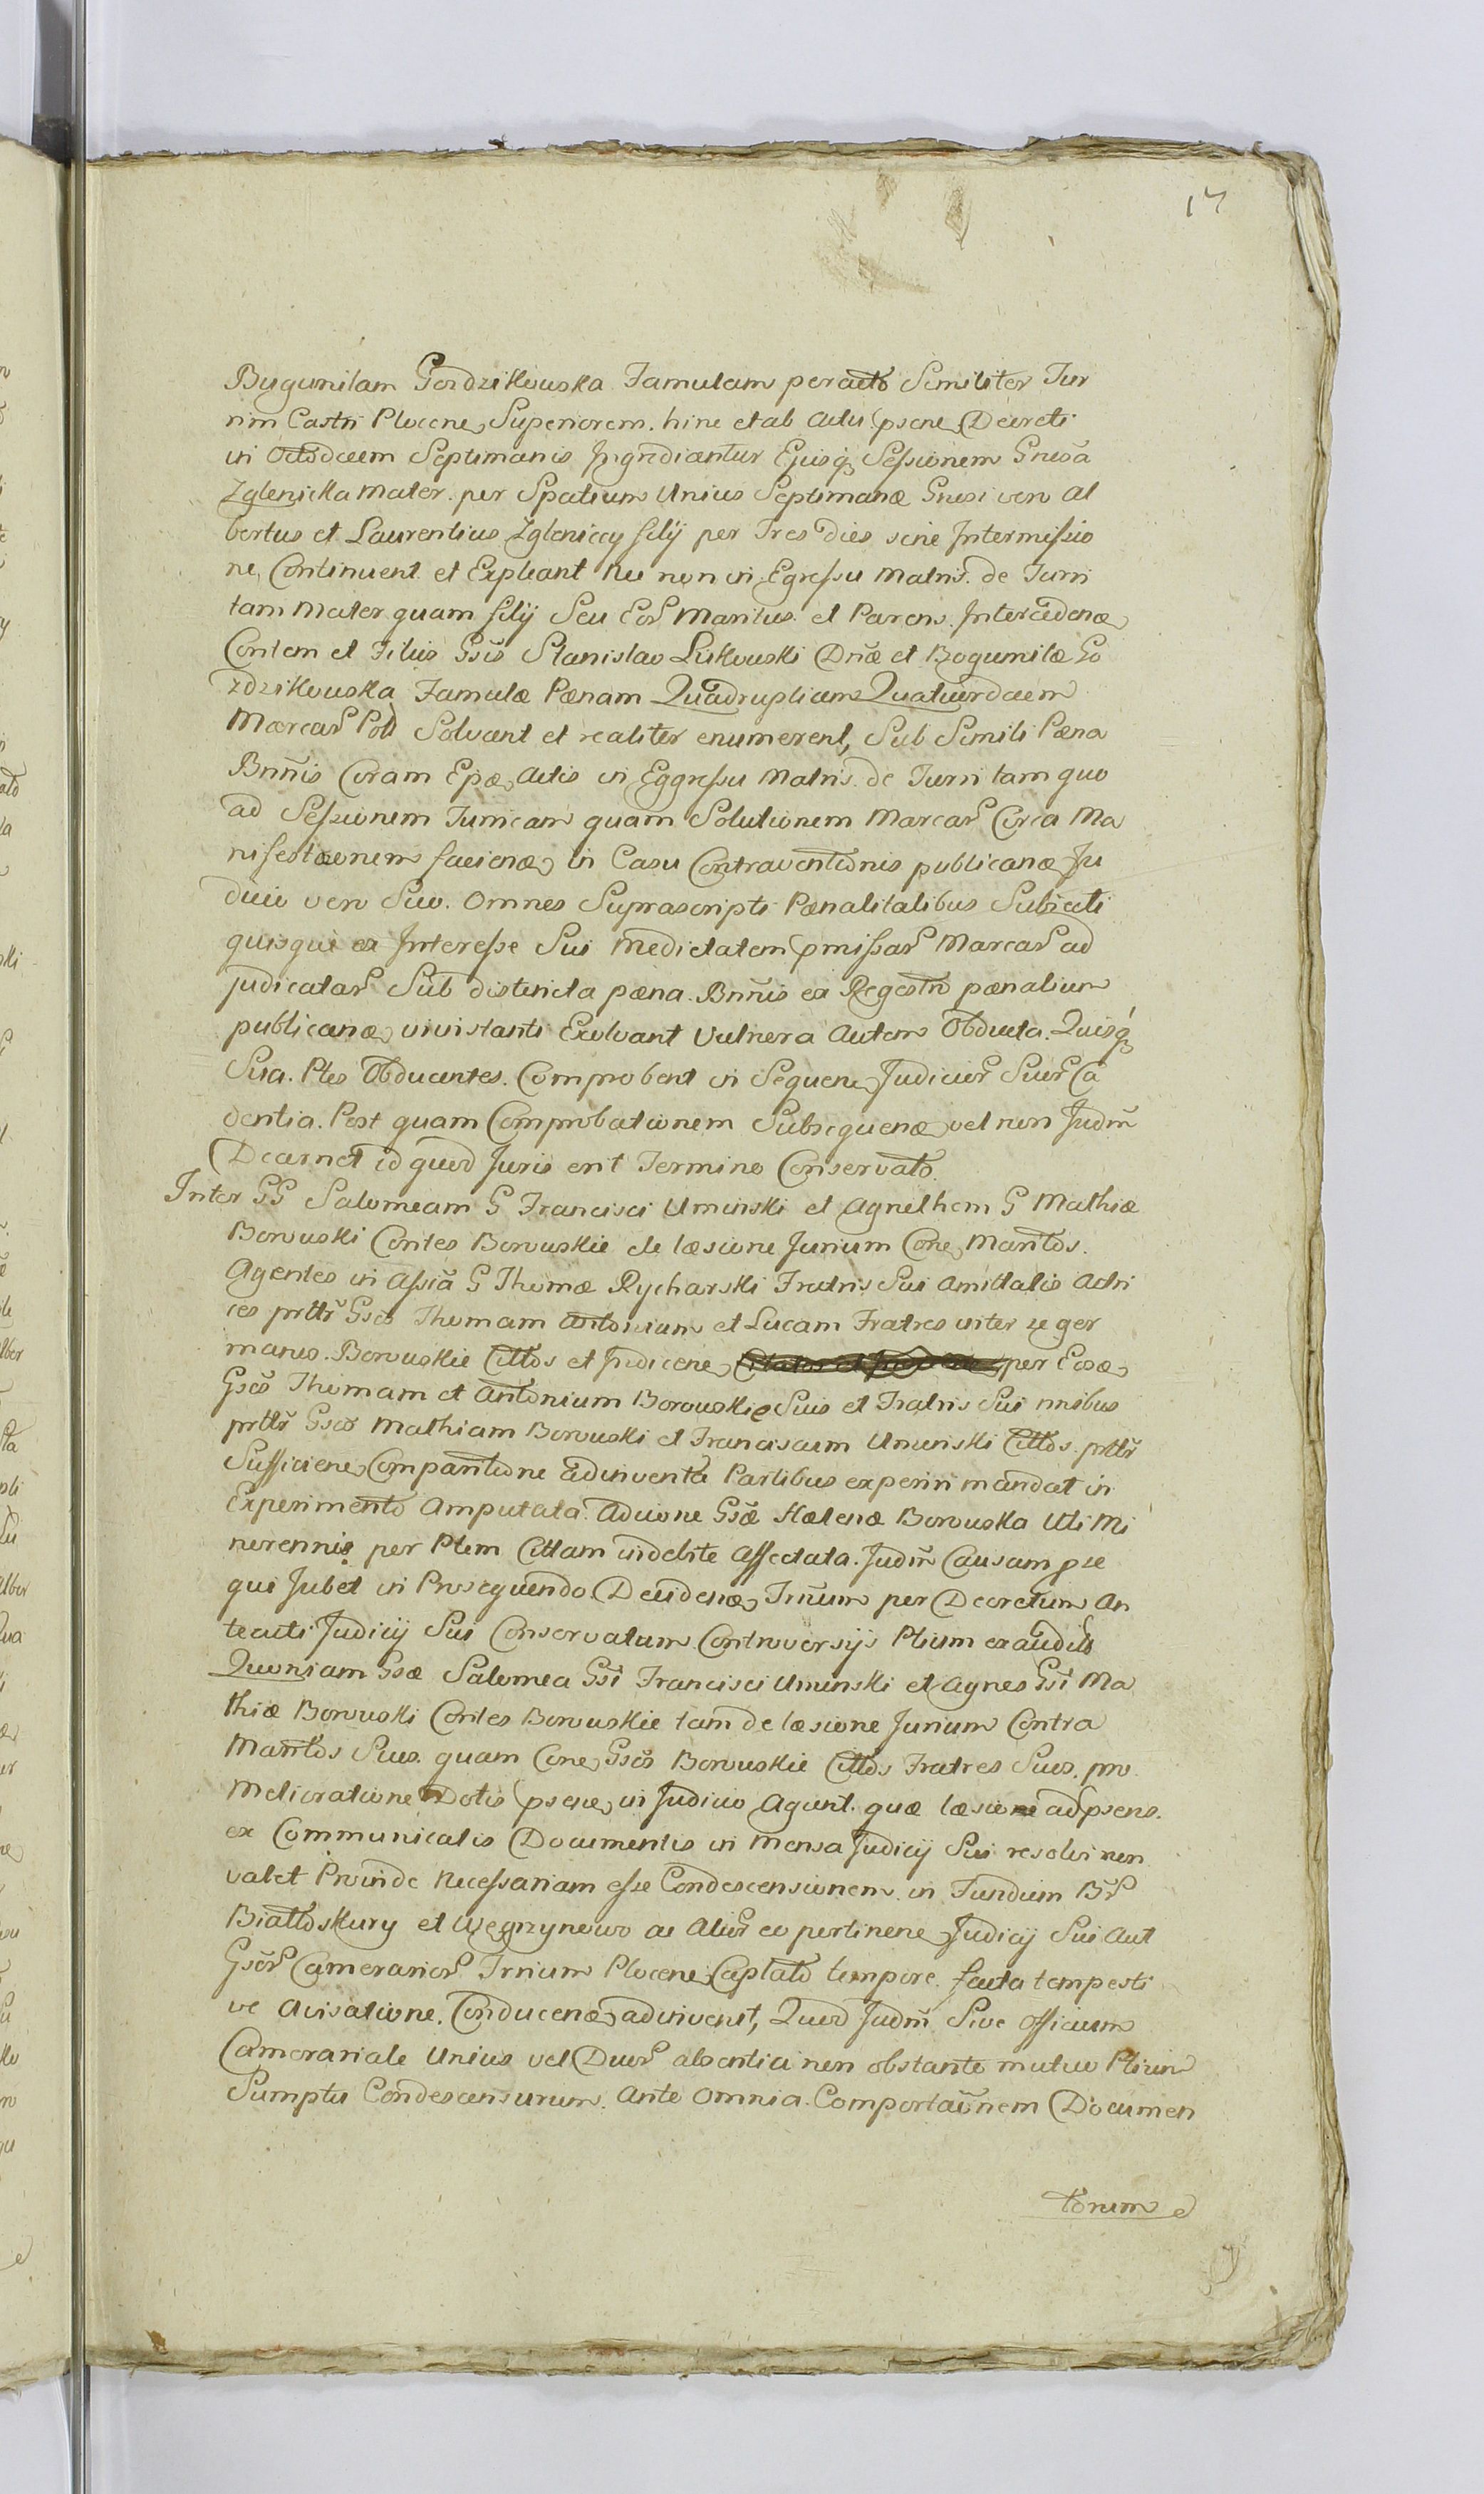 17
Bugumilam Gozdzikowska Famulam peracto Similiter Tur
rim Castri Plocene Superiorem. hinc et ab Actu psene Decreti
in Octodecem Septimanis Ingrediantur Ejusq Sessionem Gnosa
Zglenicka Mater. per Spatium Unius Septimanæ Gnosi vero Al
bertus et Laurentius Zgleniccy filij per Tres dies sine Intermissio
ne, Continuent et Expleant Nec non in Egressu Matris. de Turri
tam Mater quam filij Seu Eor Maritus et Parens. Intercedenæ
Contem et Filus Gsis Stanislao Lukowski Dnæ et Bogumilæ Go
zdzikowska Famulæ Pænam Quadruplicem Quatuordecem
Marcar Poll Solvant et realiter enumerent, Sub Simili Pæna
Bnnis Coram Epæ Actis in Eggressu Matris. de Turri tam quo
ad Sessionem Turricam quam Solutionem Marcar Circa Ma
nifestaonem facienæ in Casu Contraventionis publicanæ Ju
dicio vero Suo. Omnes Suprascripti Pænalitatibus Subiecti
quisqui ex Interesse Sui Medietatem pmissar Marcar ad
judicatar Sub distincta pæna. Bnnis ex Regestro pænalium
publicanæ vivistanti Exolvant Vulnera Autem Obducta. Quisq
Sua. Ptes Obducentes. Comprobent in Sequene Judicior Suor Ca
dentia. Post quam Comprobationem Subsequenæ vel non Judm
Decernet id quod Juris erit Termino Conservato.
Inter GG Salomeam G Francisci Uminski et Agnethem G Mathiæ
Borowski Contes Borowskie de læsione Jurium Cone Maritos.
Agentes in Assia G Thomæ Rycharski Fratris Sui Amittalis Actri
ces prttr Gsos Thomam Antonium et Lucam Fratres inter se ger
manos. Borowskie Cittos et Judicene per Eosæ
Gsos Thomam et Antonium Borowskie Suis et Fratris Sui nnibus
prttr Gsos Mathiam Borowski et Franciscum Uminski Cittos. prttr
Sufficiene Comparitione adinventa Partibus experiri mandat in
Experimento Amputata. Aducione Gsæ Hælenæ Borowska Uti Mi
norennis per Ptem Cittam indebite Affectata. Judm Causam pse
qui Jubet in Prosequendo. Decidenæ Trnum per Decretum An
teacti Judicij Sui Conservatum Controversijs Ptium exauditis
Quoniam Gsæ Salomea Gsi Francisci Uminski et Agnes Gsi Ma
thiæ Borowski Contes Borowskie tam de læsione Jurium Contra
Maritos Suos. quam Cone Gsos Borowskie Cittos Fratres Suos. pro
Melioratione Dotis psenæ in Judicio Agunt. quæ læsione ad psens.
ex Communicatis Documentis in Mensa Judicij Sui resolvi non
valet Proinde Necessariam esse Condescensionem in Fundum Br
Białtoskury et Węgrzynowo ac Alior eo pertinene Judicij Sui Aut
Gsor Camerarior Trrium Plocene Captato tempore. facta tempesti
ve Avisatione. Conducenæ adinvenit, Quod Judm Sive Officium
Camerariale Unius vel Duor absentia non obstante mutuo Ptium
Sumptu Condescensurum. Ante Omnia. Comportaonem Documen
torum